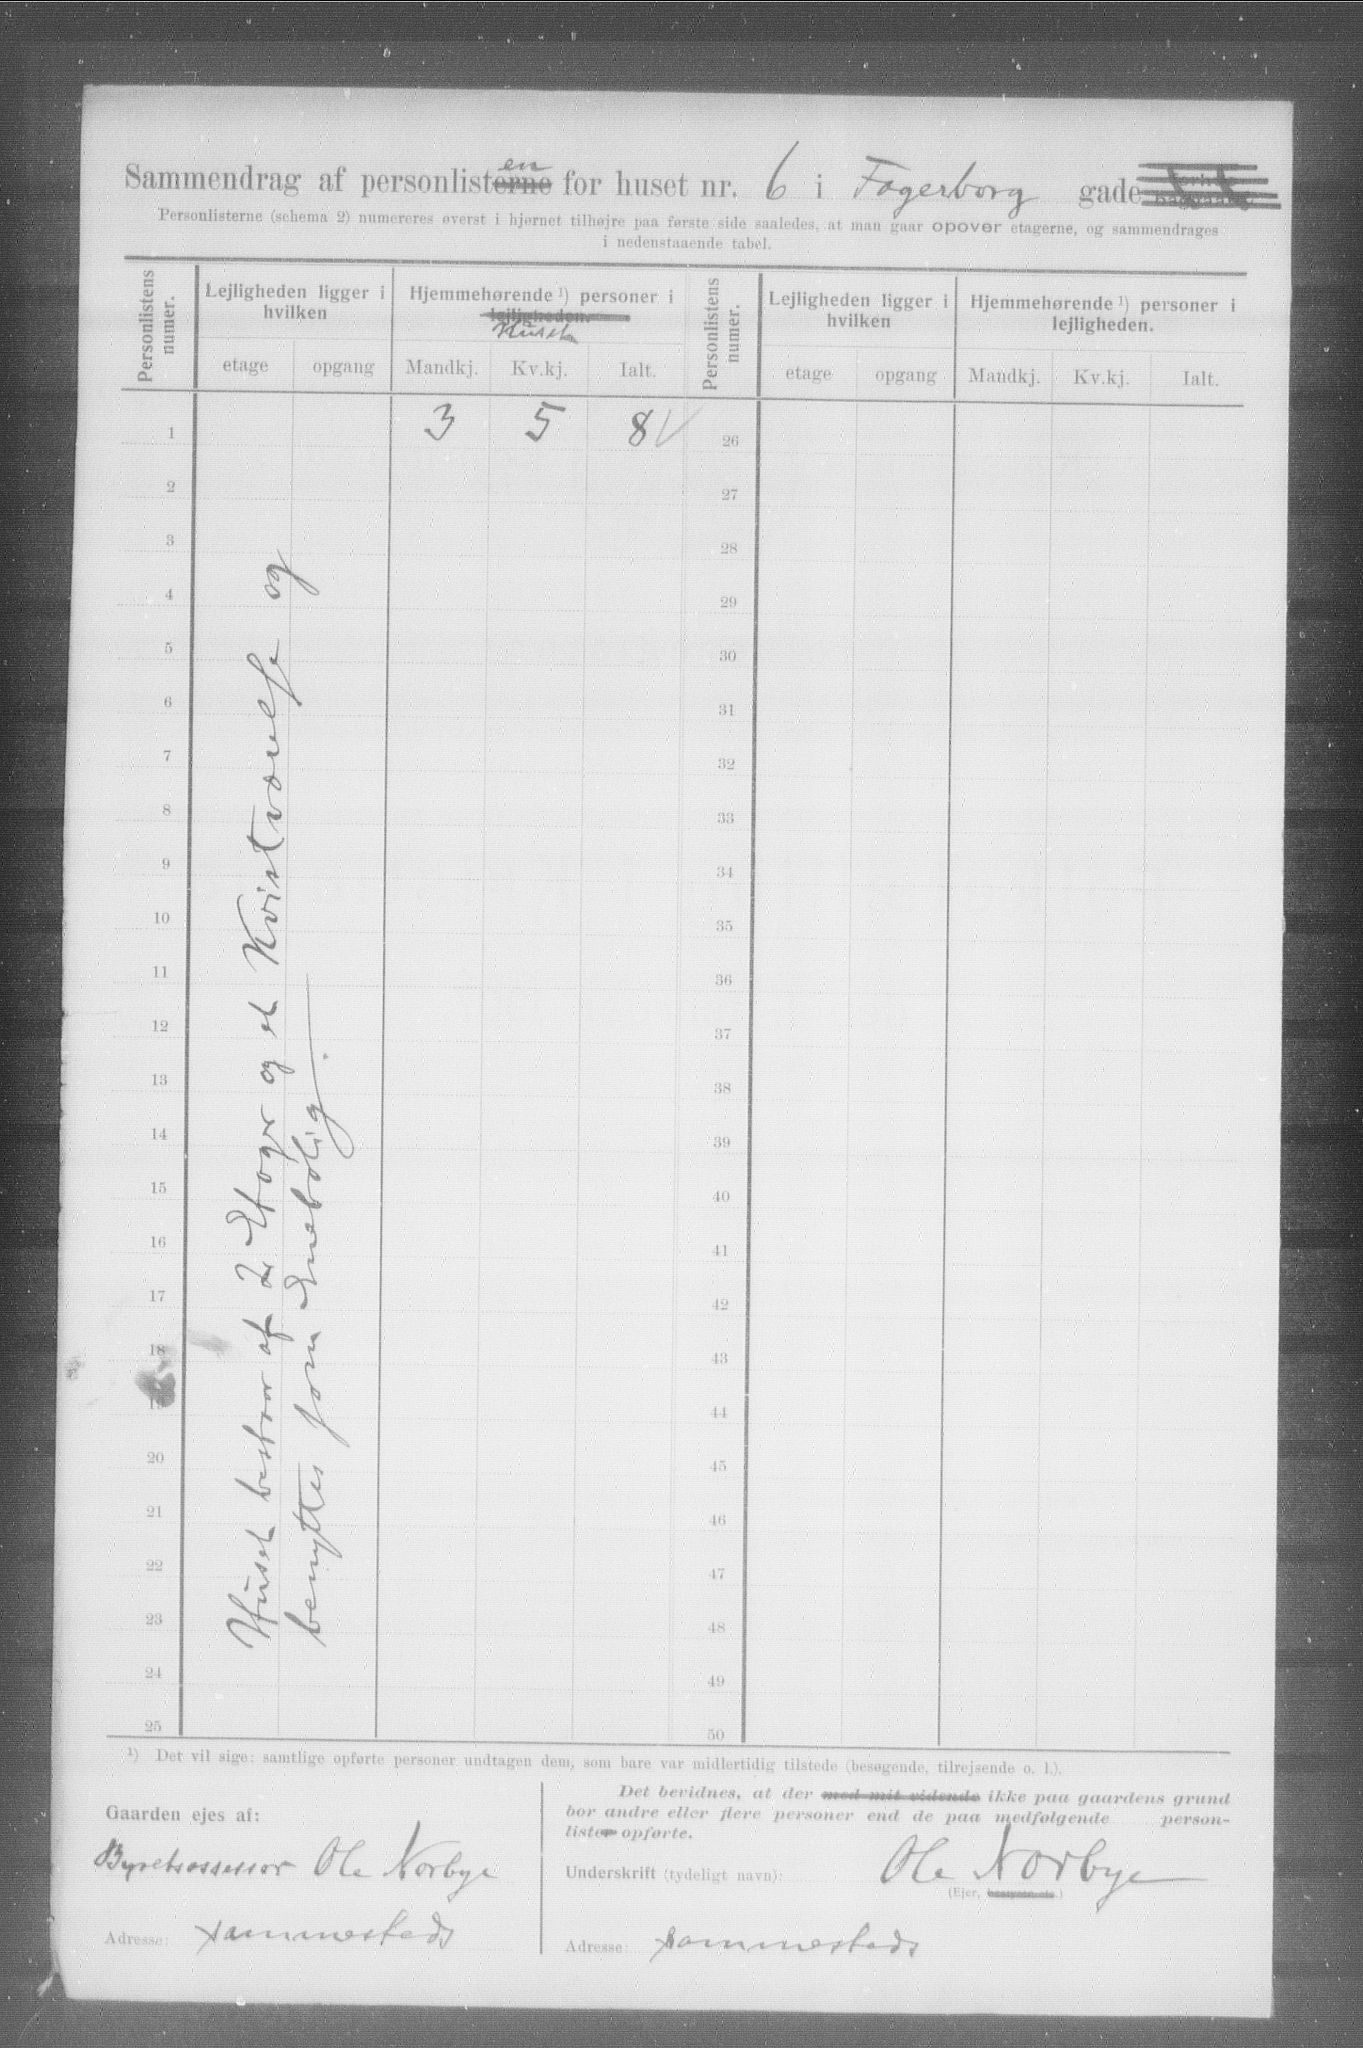 en
Sammendrag af personlisterne for huset nr. 6 i Fagerborg gade
Personlisterne (schema 2) numereres øverst i hjørnet tilhøjre paa første side saaledes, at man gaar opover etagerne, og sammendrages
i nedenstaaende tabel.
Personlistens numer.
Lejligheden ligger i hvilken
etage
opgang
Hjemmehørende ¹) personer i
lejligheden.
Huset
Mandkj.
Kv.kj.
Ialt.
Personlistens numer.
Lejligheden ligger i hvilken
etage
opgang
Hjemmehørende ¹) personer i
lejligheden.
Mandkj.
Kv.kj.
Ialt.
1 3 5 8 26
2 27
3 28
4 29
5 30
6 31
7 32
8 33
9 34
10 35
11 36
12 37
13 38
14 39
15 40
16 41
17 42
18 43
19 44
20 45
21 46
22 47
23 48
24 49
25 50
Huset bestaar af 2 Etager og et Kvistværelse og
benyttes som Enebolig.
¹) Det vil sige: samtlige opførte personer undtagen dem, som bare var midlertidig tilstede (besøgende, tilrejsende o. l.).
Gaarden ejes af:
Byretsassessor Ole Norbye
Adresse: sammesteds
Det bevidnes, at der med mit vidende ikke paa gaardens grund
bor andre eller flere personer end de paa medfølgende person-
lister opførte.
Underskrift (tydeligt navn): Ole Norbye
(Ejer,
Adresse: sammesteds